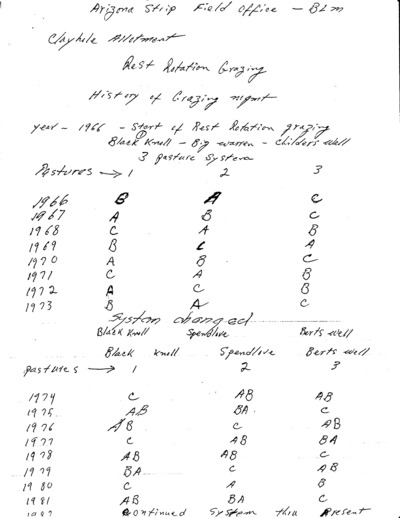 Arizona Strip Field Office - BLM
Clayhole Allotment
Rest Rotation Grazing
History of Grazing mgmt
year - 1966 - Start of Rest Rotation grazing
Black Knoll - Big warren - Childers Well
3 pasture System
Pastures → 1 2 3
1966 B A C
1967 A B C
1968 C A B
1969 B C A
1970 A B C
1971 C A B
1972 A C B
1973 B A C
System changed
Black Knoll Spendlove Berts well
Black Knoll Spendlove Berts well
pastures → 1 2 3
1974 C AB AB
1975 AB BA C
1976 AB C AB
1977 C AB BA
1978 AB AB C
1979 BA C AB
1980 C A B
1981 AB BA C
1982 Continued System thru Present